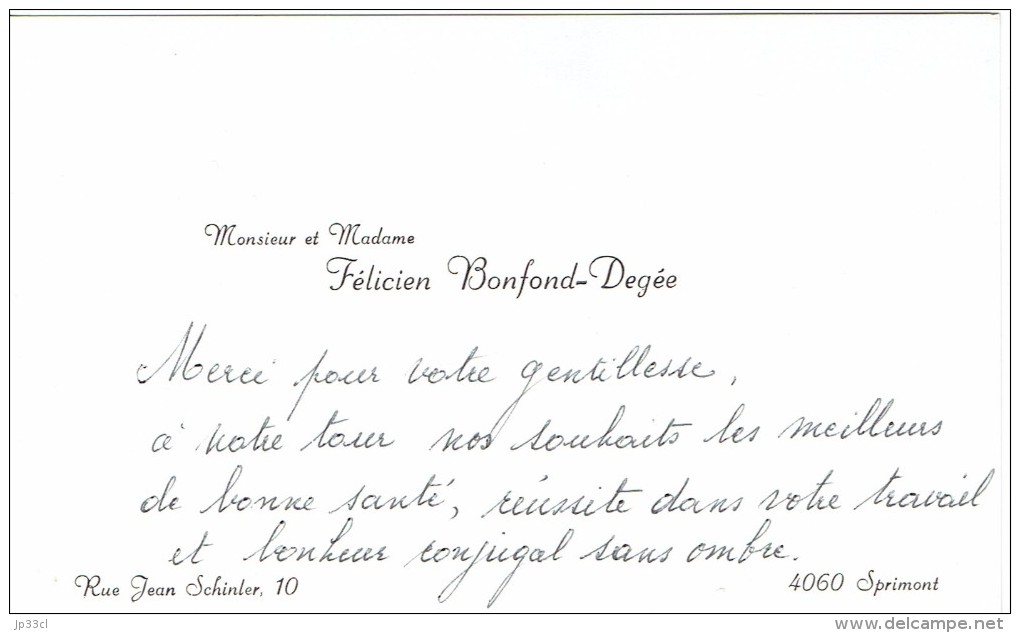 Monsieur et Madame
Félicien Bonfond-Degée
Merci pour votre gentillesse,
à notre tour nos souhaits les meilleurs
de bonne santé, réussite dans votre travail
et bonheur conjugal sans ombre.
Rue Jean Schinler, 10
4060 Sprimont
jp33cl
www.delcampe.net